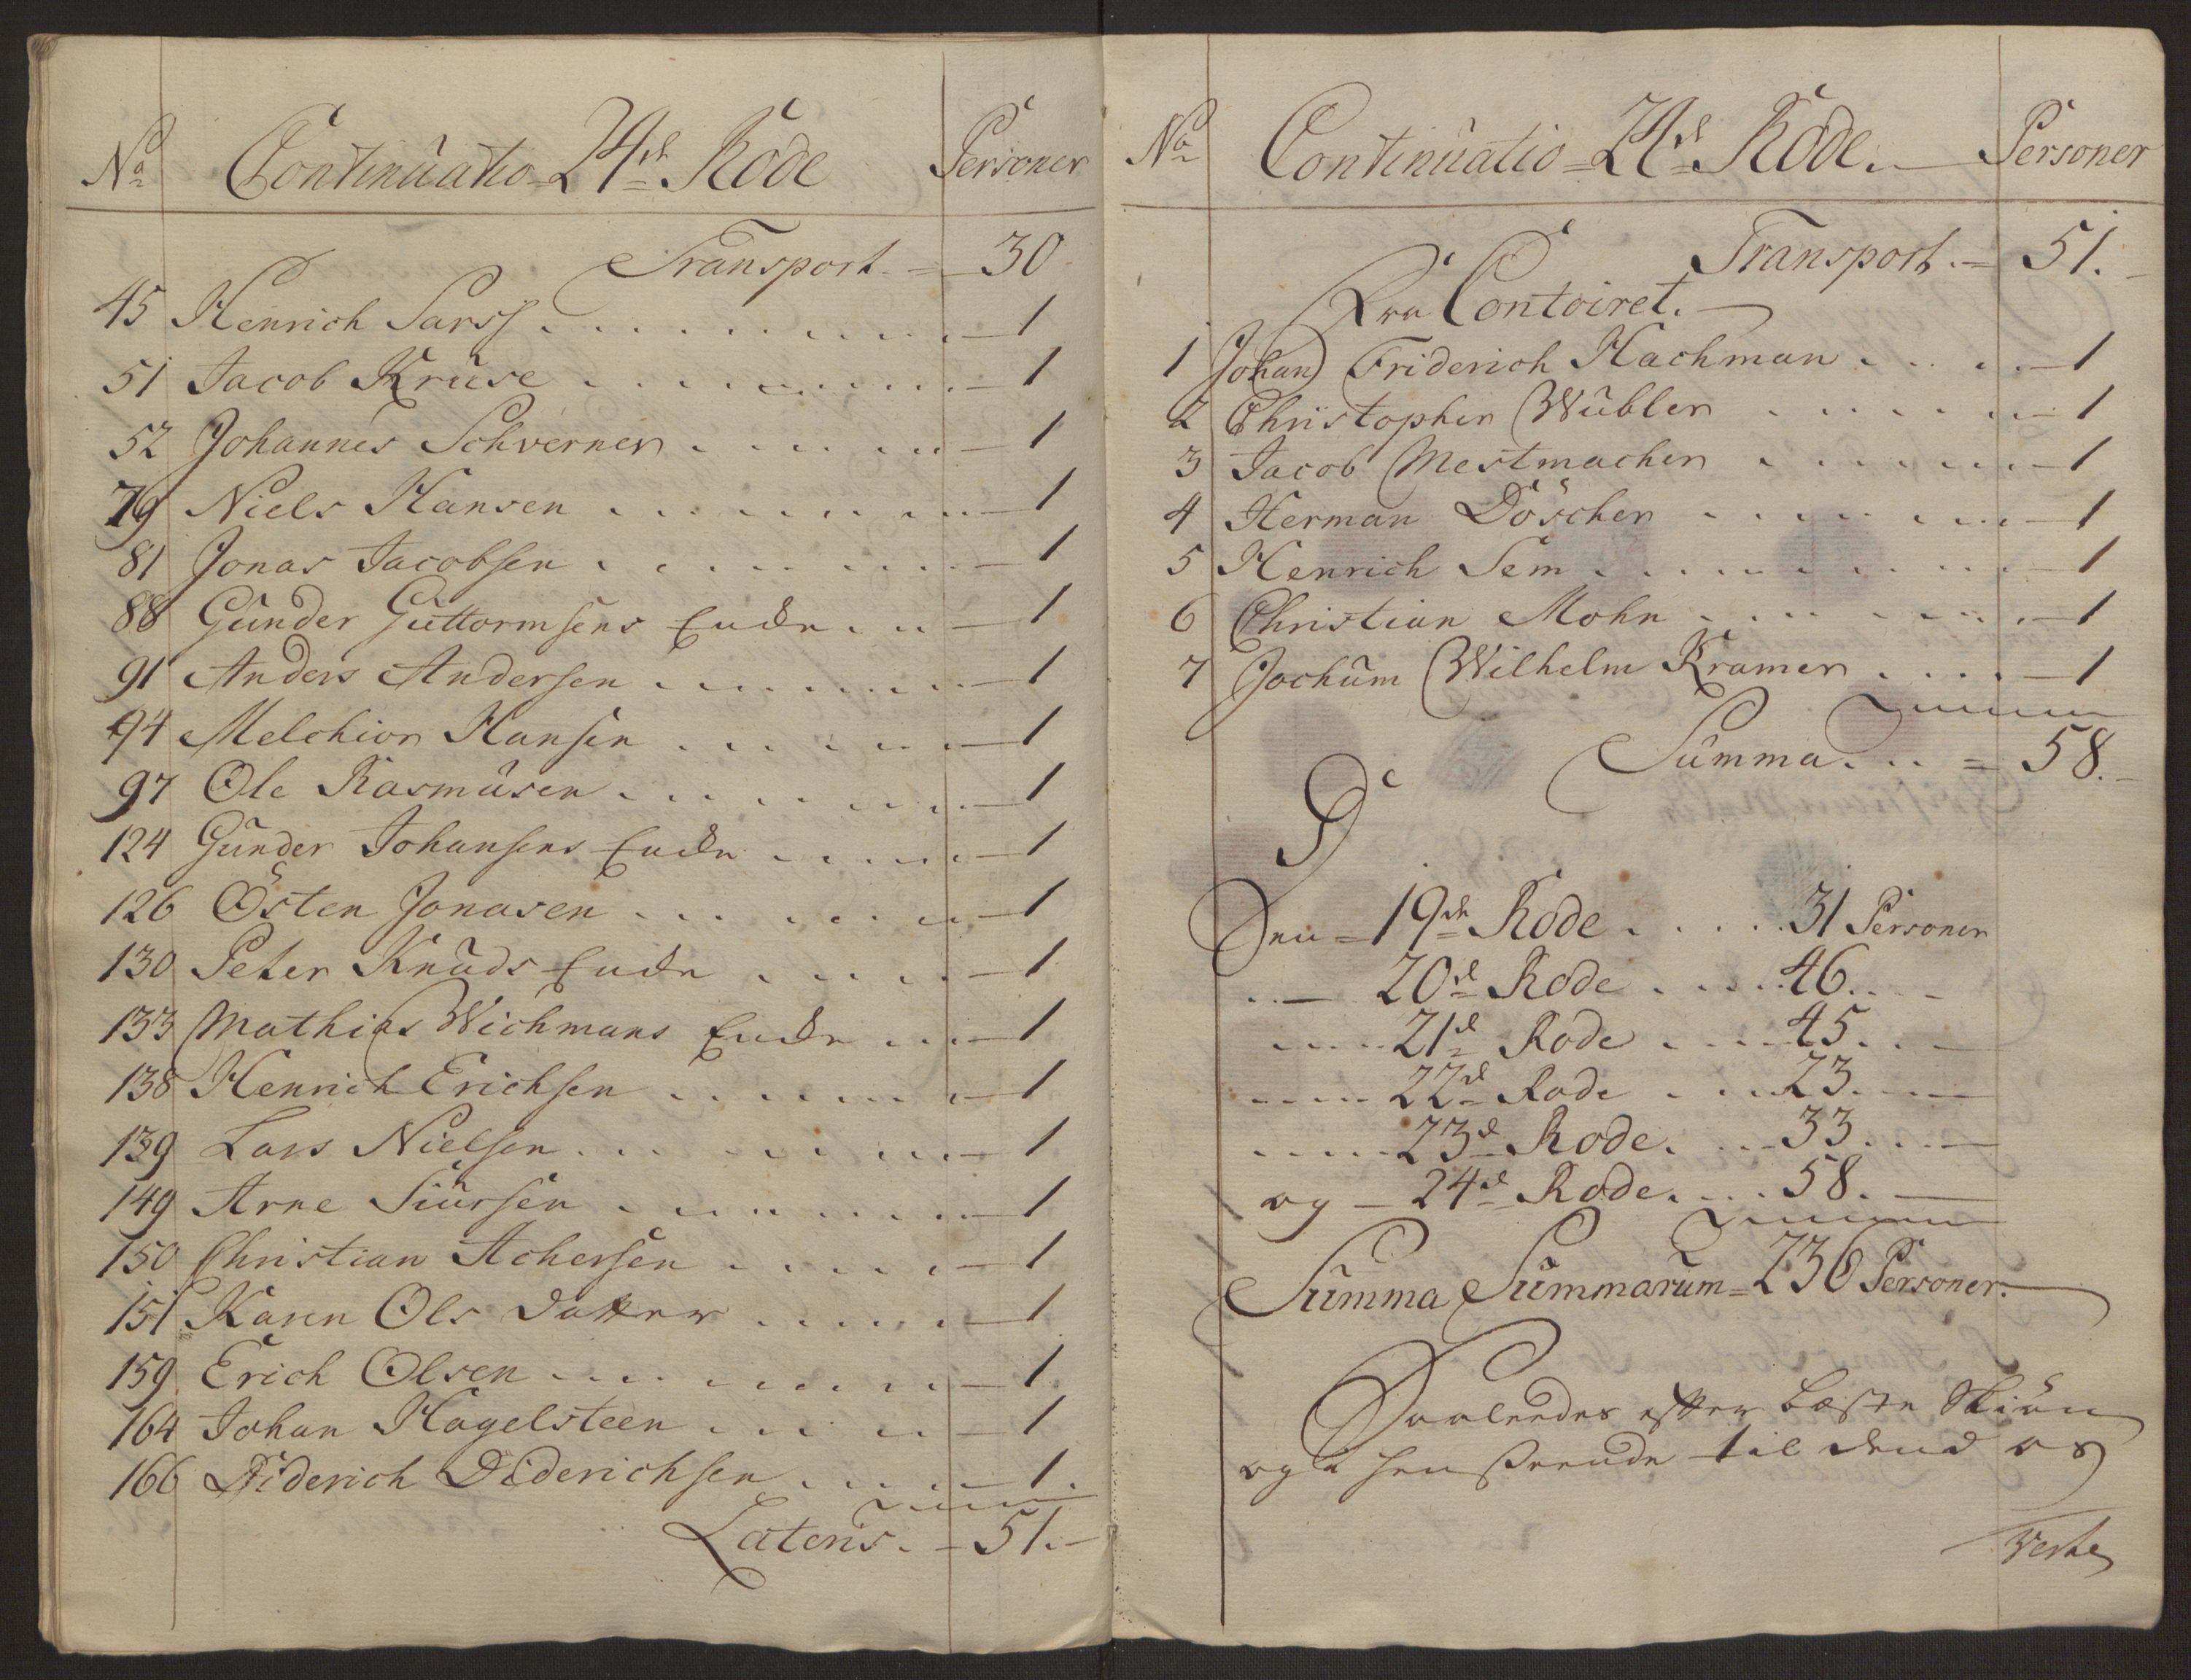 No Continuatio = 24de Rode Personer
Transport. = 30
45 Henrich Sarss . . . 1
51 Jacob Kruse . . . 1
52 Johannes Schverner . . . 1
79 Niels Hansen . . . 1
81 Jonas Jacobsen . . . 1
88 Gunder Guttormsens Encke . . . 1
91 Anders Andersen . . . 1
94 Melchior Hansen . . . 1
97 Ole Rasmusen . . . 1
124 Gunder Johansens Encke . . . 1
126 Østen Jonasen . . . 1
130 Peter Knuds Encke . . . 1
133 Mathias Wichmans Encke . . . 1
138 Henrich Erichsen . . . 1
139 Lars Nielsen . . . 1
149 Arne Siursen . . . 1
150 Christian Achersen . . . 1
151 Karen Ols datter . . . 1
159 Erich Olsen . . . 1
164 Johan Hagelsteen . . . 1
166 Diderich Diderichsen . . . 1.
Lateris. - 51. -
No Continuatio = 24de Rode. Personer
Transport. = 51. -
Contoiret.
1 Johan Friderich Hachman . . . 1
2 Christopher Wübler . . . 1
3 Jacob Mestmacher . . . 1
4 Herman Döscher . . . 1
5 Henrich Sem . . . 1
6 Christian Mohn . . . 1
7 Jochum Wilhelm Kramer . . . 1
Summa . . . = 58. -
19de Rode . . . 31 Personer
20d Rode . . . 46.
21d Rode . . . 45.
22d Rode . . . 23.
23d Rode . . . 33.
og - 24d Rode . . . 58.
Summa Summarum = 236 Personer.
Saaleedes efter bæste Skiøn
og i henseende til dend os
Verte